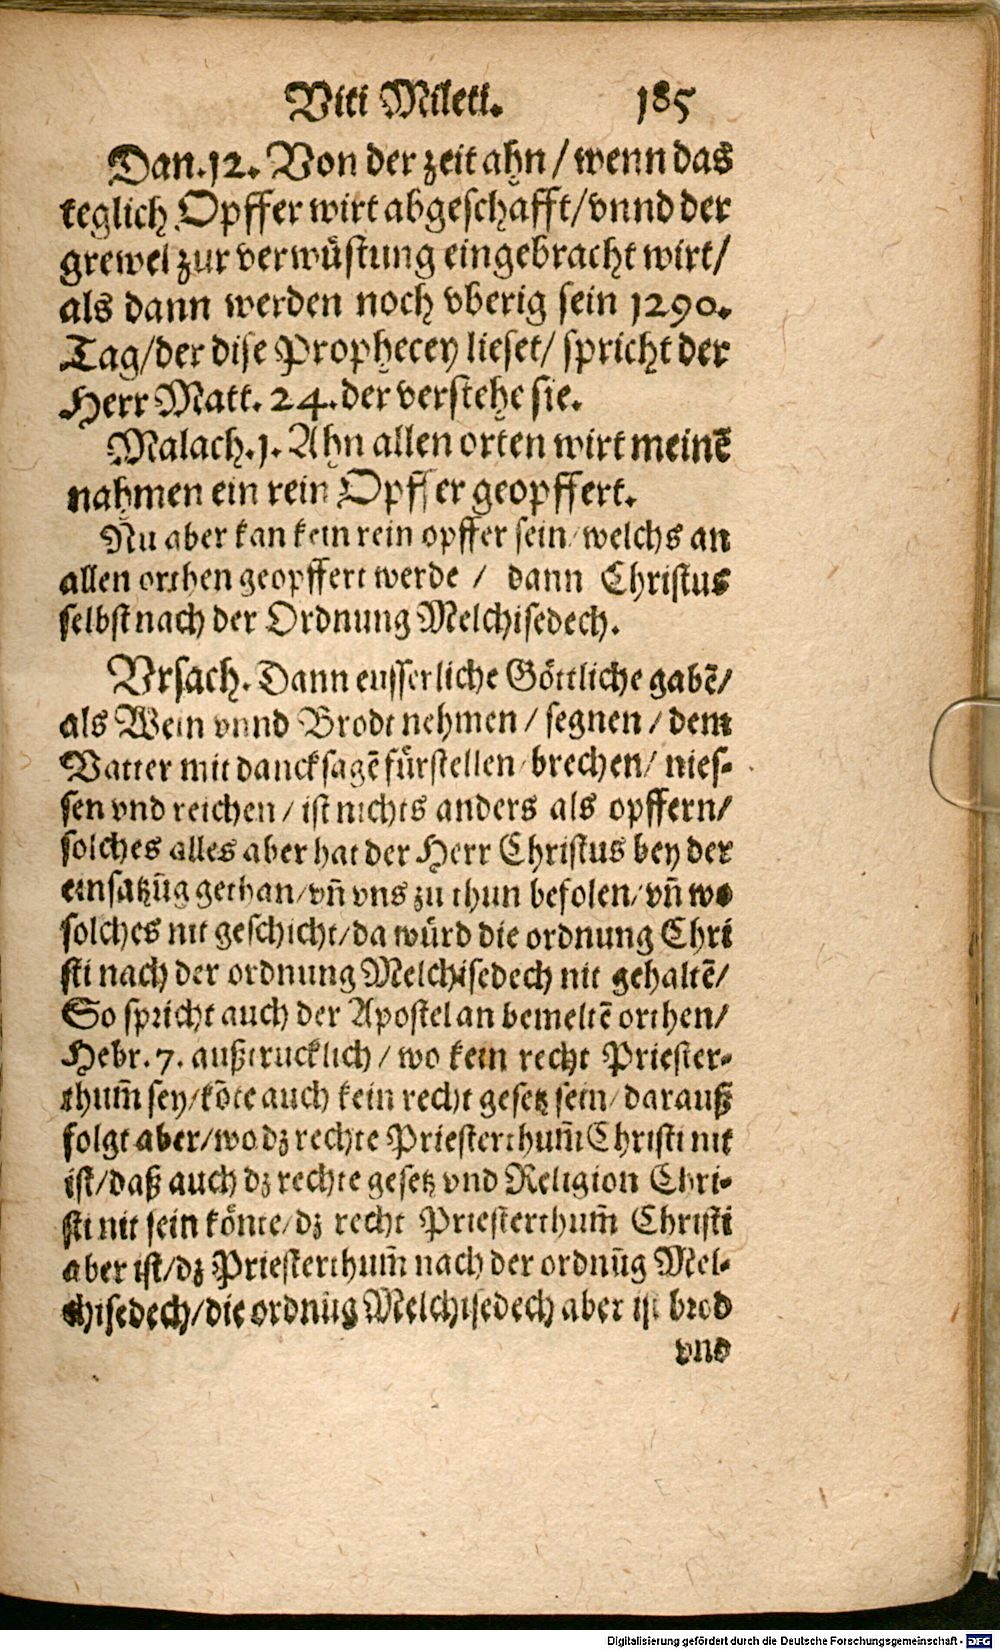 Viti Mileti. 185
Dan.12. Von der zeit ahn / wenn das
teglich Opffer wirt abgeschafft/vnnd der
grewel zur verwüstung eingebracht wirt/
als dann werden noch vberig sein 1290.
Tag/der dise Prophecey lieset/ spricht der
Herr Matt. 24.der verstehe sie.
Malach.1. Ahn allen orten wirt meinē
nahmen ein rein Opffer geopffert.
Nu aber kan kein rein opffer sein/welchs an
allen orthen geopffert werde / dann Christus
selbst nach der Ordnung Melchisedech.
Vrsach. Dann eusserliche Göttliche gabē/
als Wein vnnd Brodt nehmen / segnen / dem
Vatter mit dancksagē fürstellen/brechen/ nies-
sen vnd reichen / ist nichts anders als opffern/
solches alles aber hat der Herr Christus bey der
einsatzūg gethan/vn̄ vns zu thun befolen/vn̄ wo
solches nit geschicht/da würd die ordnung Chri
sti nach der ordnung Melchisedech nit gehaltē/
So spricht auch der Apostel an bemeltē orthen/
Hebr.7. außtrucklich / wo kein recht Priester-
thum̄ sey/kōte auch kein recht gesetz sein/darauß
folgt aber/wo dz rechte Priesterthum̄ Christi nit
ist/daß auch dz rechte gesetz vnd Religion Chri-
sti nit sein könte/dz recht Priesterthum̄ Christi
aber ist/dz Priesterthum̄ nach der ordnūg Mel-
chisedech/die ordnūg Melchisedech aber ist brod
vnd
Digitalisierung gefördert durch die Deutsche Forschungsgemeinschaft - DFG